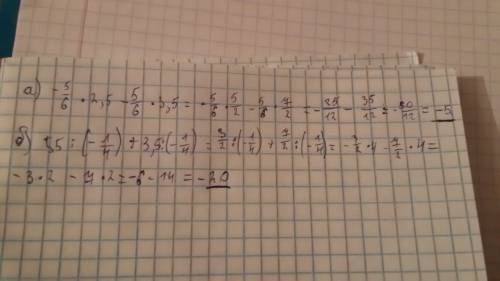 а) -5/6 · 2,5 - 5/6 · 3,5 = -5/6 · 5/2 - 5/6 · 7/2 = -25/12 - 35/12 = -60/12 = -5
б) 1,5 : (-1/4) + 3,5 : (-1/4) = 3/2 : (-1/4) + 7/2 : (-1/4) = -3/2 · 4 - 7/2 · 4 =
-3 · 2 - 7 · 2 = -6 - 14 = -20